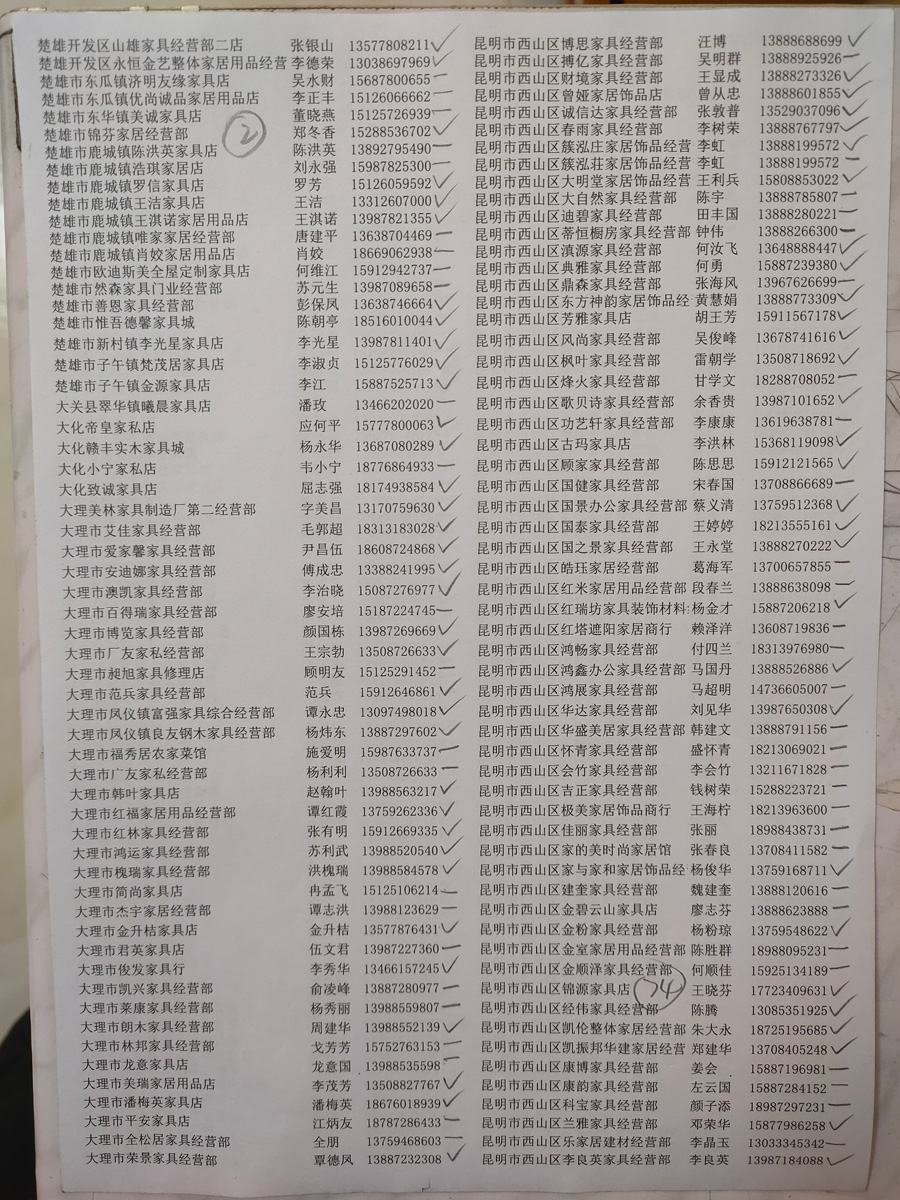 楚雄开发区山雄家具经营部二店 张银山 13577808211 ✓
楚雄开发区永恒金艺整体家居用品经营 李德荣 13038697969 ✓
楚雄市东瓜镇济明友缘家具店 吴水财 15687800655 —
楚雄市东瓜镇优尚诚品家居用品店 李正丰 15126066662 —
楚雄市东华镇美诚家具店 董晓燕 15125726939 —
楚雄市锦芬家居经营部 郑冬香 15288536702 ✓
②
楚雄市鹿城镇陈洪英家具店 陈洪英 13892795490 —
楚雄市鹿城镇浩琪家居店 刘永强 15987825300 —
楚雄市鹿城镇罗信家具店 罗芳 15126059592 ✓
楚雄市鹿城镇王洁家具店 王洁 13312607000 ✓
楚雄市鹿城镇王淇诺家居用品店 王淇诺 13987821355 ✓
楚雄市鹿城镇唯家家居经营部 唐建平 13638704469 —
楚雄市鹿城镇肖姣家居用品店 肖姣 18669062938 —
楚雄市欧迪斯美全屋定制家具店 何维江 15912942737 —
楚雄市然森家具门业经营部 苏元生 13987089658 —
楚雄市善恩家具经营部 彭保凤 13638746664 ✓
楚雄市惟吾德馨家具城 陈朝亭 18516010044 ✓
楚雄市新村镇李光星家具店 李光星 13987811401 ✓
楚雄市子午镇梵茂居家具店 李淑贞 15125776029 ✓
楚雄市子午镇金源家具店 李江 15887525713 ✓
大关县翠华镇曦晨家具店 潘玫 13466202020 —
大化帝皇家私店 应何平 15777800063 ✓
大化赣丰实木家具城 杨永华 13687080289 ✓
大化小宁家私店 韦小宁 18776864933 —
大化致诚家具店 屈志强 18174938584 ✓
大理美林家具制造厂第二经营部 字美昌 13170759630 ✓
大理市艾佳家具经营部 毛郭超 18313183028 ✓
大理市爱家馨家具经营部 尹昌伍 18608724868 ✓
大理市安迪娜家具经营部 傅成忠 13388241995 ✓
大理市澳凯家具经营部 李治晓 15087276977 ✓
大理市百得瑞家具经营部 廖安培 15187224745 —
大理市博览家具经营部 颜国栋 13987269669 ✓
大理市厂友家私经营部 王宗勃 13508726633 ✓
大理市昶旭家具修理店 顾明友 15125291452 —
大理市范兵家具经营部 范兵 15912646861 ✓
大理市凤仪镇富强家具综合经营部 谭永忠 13097498018 ✓
大理市凤仪镇良友钢木家具经营部 杨炜东 13887297602 ✓
大理市福秀居农家菜馆 施爱明 15987633737 —
大理市广友家私经营部 杨利利 13508726633 —
大理市韩叶家具店 赵翰叶 13988563217 ✓
大理市红福家居用品经营部 谭红霞 13759262336 ✓
大理市红林家具经营部 张有明 15912669335 ✓
大理市鸿运家具经营部 苏利武 13988520540 ✓
大理市槐瑞家具经营部 洪槐瑞 13988584578 ✓
大理市简尚家具店 冉孟飞 15125106214 —
大理市杰宇家居经营部 谭志洪 13988123629 —
大理市金升桔家具店 金升桔 13577876431 ✓
大理市君英家具店 伍文君 13987227360 —
大理市俊发家具行 李秀华 13466157245 ✓
大理市凯兴家具经营部 俞凌峰 13887280977 —
大理市莱康家具经营部 杨秀丽 13988559807 —
大理市朗木家具经营部 周建华 13988552139 ✓
大理市林邦家具经营部 戈芳芳 15752763153 —
大理市龙意家具店 龙意国 13988535598 —
大理市美瑞家居用品店 李茂芳 13508827767 ✓
大理市潘梅英家具店 潘梅英 18676018939 ✓
大理市平安家具店 江炳友 18787286433 —
大理市全松居家具经营部 全朋 13759468603 —
大理市荣景家具经营部 覃德凤 13887232308 ✓
昆明市西山区博思家具经营部 汪博 13888688699 ✓
昆明市西山区搏亿家具经营部 吴明群 13888925926 —
昆明市西山区财境家具经营部 王显成 13888273326 ✓
昆明市西山区曾娅家居饰品店 曾从忠 13888601855 ✓
昆明市西山区诚信达家具经营部 张敦普 13529037096 ✓
昆明市西山区春雨家具经营部 李树荣 13888767797 ✓
昆明市西山区簇泓庄家居饰品经营 李虹 13888199572 ✓
昆明市西山区簇泓荘家居饰品经营 李虹 13888199572 —
昆明市西山区大明堂家居饰品经营 王利兵 15808853022 ✓
昆明市西山区大自然家具经营部 陈宇 13888785807 —
昆明市西山区迪碧家具经营部 田丰国 13888280221 —
昆明市西山区蒂恒橱房家具经营部 钟伟 13888266300 —
昆明市西山区滇源家具经营部 何汝飞 13648888447 ✓
昆明市西山区典雅家具经营部 何勇 15887239380 ✓
昆明市西山区鼎森家具经营部 张海风 13967626699 —
昆明市西山区东方神韵家居饰品经 黄慧娟 13888773309 ✓
昆明市西山区芳雅家具店 胡王芳 15911567178 ✓
昆明市西山区风尚家具经营部 吴俊峰 13678741616 ✓
昆明市西山区枫叶家具经营部 雷朝学 13508718692 ✓
昆明市西山区烽火家具经营部 甘学文 18288708052 —
昆明市西山区歌贝诗家具经营部 余香贵 13987101652 ✓
昆明市西山区功艺轩家具经营部 李康康 13619638781 —
昆明市西山区古玛家具店 李洪林 15368119098 ✓
昆明市西山区顾家家具经营部 陈思思 15912121565 ✓
昆明市西山区国健家具经营部 宋春国 13708866689 —
昆明市西山区国景办公家具经营部 蔡义清 13759512368 ✓
昆明市西山区国泰家具经营部 王婷婷 18213555161 ✓
昆明市西山区国之景家具经营部 王永堂 13888270222 ✓
昆明市西山区皓珏家居经营部 葛海军 13700657855 —
昆明市西山区红米家居用品经营部 段春兰 13888638098 —
昆明市西山区红瑞坊家具装饰材料: 杨金才 15887206218 ✓
昆明市西山区红塔遮阳家居商行 赖泽洋 13608719836 —
昆明市西山区鸿畅家具经营部 付四兰 18313976980 —
昆明市西山区鸿鑫办公家具经营部 马国丹 13888526886 ✓
昆明市西山区鸿展家具经营部 马超明 14736605007 —
昆明市西山区华达家具经营部 刘见华 13987650308 ✓
昆明市西山区华盛美居家具经营部 韩建文 13888791156 —
昆明市西山区怀青家具经营部 盛怀青 18213069021 —
昆明市西山区会竹家具经营部 李会竹 13211671828 —
昆明市西山区吉正家具经营部 钱树荣 15288223721 —
昆明市西山区极美家居饰品商行 王海柠 18213963600 —
昆明市西山区佳丽家具经营部 张丽 18988438731 —
昆明市西山区家的美时尚家居馆 张春良 13708411582 —
昆明市西山区家与家和家居饰品经 杨俊华 13759168711 ✓
昆明市西山区建奎家具经营部 魏建奎 13888120616 —
昆明市西山区金碧云山家具店 廖志芬 13888623888 —
昆明市西山区金粉家具经营部 杨粉琼 13759548622 ✓
昆明市西山区金室家居用品经营部 陈胜群 18988095231 —
昆明市西山区金顺泽家具经营部 何顺佳 15925134189 —
昆明市西山区锦源家具店 王晓芬 17723409631 ✓
74
昆明市西山区经伟家具经营部 陈腾 13085351925 ✓
昆明市西山区凯伦整体家居经营部 朱大永 18725195685 ✓
昆明市西山区凯振邦华建家居经营 郑建华 13708405248 ✓
昆明市西山区康博家具经营部 姜会 15887196981 —
昆明市西山区康韵家具经营部 左云国 15887284152 —
昆明市西山区科宝家具经营部 颜子添 18987297231 —
昆明市西山区兰雅家具经营部 邓荣华 15877986258 ✓
昆明市西山区乐家居建材经营部 李晶玉 13033345342 —
昆明市西山区李良英家具经营部 李良英 13987184088 ✓